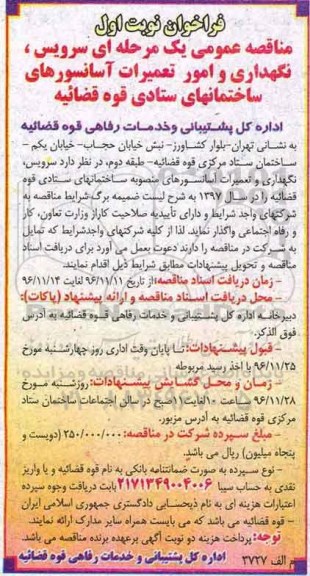 فراخوان نوبت اول
مناقصه عمومی یک مرحله ای سرویس ،
نگهداری و امور تعمیرات آسانسورهای
ساختمانهای ستادی قوه قضائیه
اداره کل پشتیبانی وخدمات رفاهی قوه قضائیه
به نشانی تهران-بلوار کشاورز- نبش خیابان حجاب- خیابان یکم -
ساختمان ستاد مرکزی قوه قضائیه- طبقه دوم، در نظر دارد سرویس،
نگهداری و تعمیرات آسانسورهای منصوبه ساختمانهای ستادی قوه
قضائیه را در سال ۱۳۹۷ به شرح لیست ضمیمه برگ شرایط مناقصه به
شرکتهای واجد شرایط و دارای تأییدیه صلاحیت کاراز وزارت تعاون، کار
و رفاه اجتماعی واگذار نماید. لذا از کلیه شرکتهای واجدشرایط که تمایل
به شرکت در مناقصه را دارند دعوت بعمل می آورد برای دریافت اسناد
مناقصه و تحویل پیشنهادات مطابق شرایط ذیل اقدام نمایند.
- زمان دریافت اسناد مناقصه: از تاریخ ۹۶/۱۱/۱۱ لغایت ۹۶/۱۱/۱۴
- محل دریافت اسناد مناقصه و ارائه پیشنهاد (پاکات):
دبیرخانه اداره کل پشتیبانی و خدمات رفاهی قوه قضائیه به آدرس
فوق الذکر.
- قبول پیشنهادات: تا پایان وقت اداری روز چهارشنبه مورخ
۹۶/۱۱/۲۵ با اخذ رسید مربوطه
- زمان و محل گشایش پیشنهادات: روزشنبه مورخ
۹۶/۱۱/۲۸ ساعت ۱۰ لغایت ۱۲ صبح در سالن اجتماعات ساختمان ستاد
مرکزی قوه قضائیه به آدرس مزبور.
- مبلغ سپرده شرکت در مناقصه: ۲۵۰/۰۰۰/۰۰۰ (دویست و
پنجاه میلیون) ریال می باشد.
- نوع سپرده به صورت ضمانتنامه بانکی به نام قوه قضائیه و یا واریز
نقدی به حساب سیبا ۲۱۷۱۳۴۹۰۰۴۰۰۶ بابت دریافت وجوه سپرده
اعتبارات هزینه ای به نام ذیحسابی دادگستری جمهوری اسلامی ایران
- قوه قضائیه می باشد که می بایست همراه سایر مدارک ارائه نمایند.
توجه: پرداخت هزینه دو نوبت آگهی برعهده برنده مناقصه می باشد.
م الف ۳۷۲۷ اداره کل پشتیبانی و خدمات رفاهی قوه قضائیه